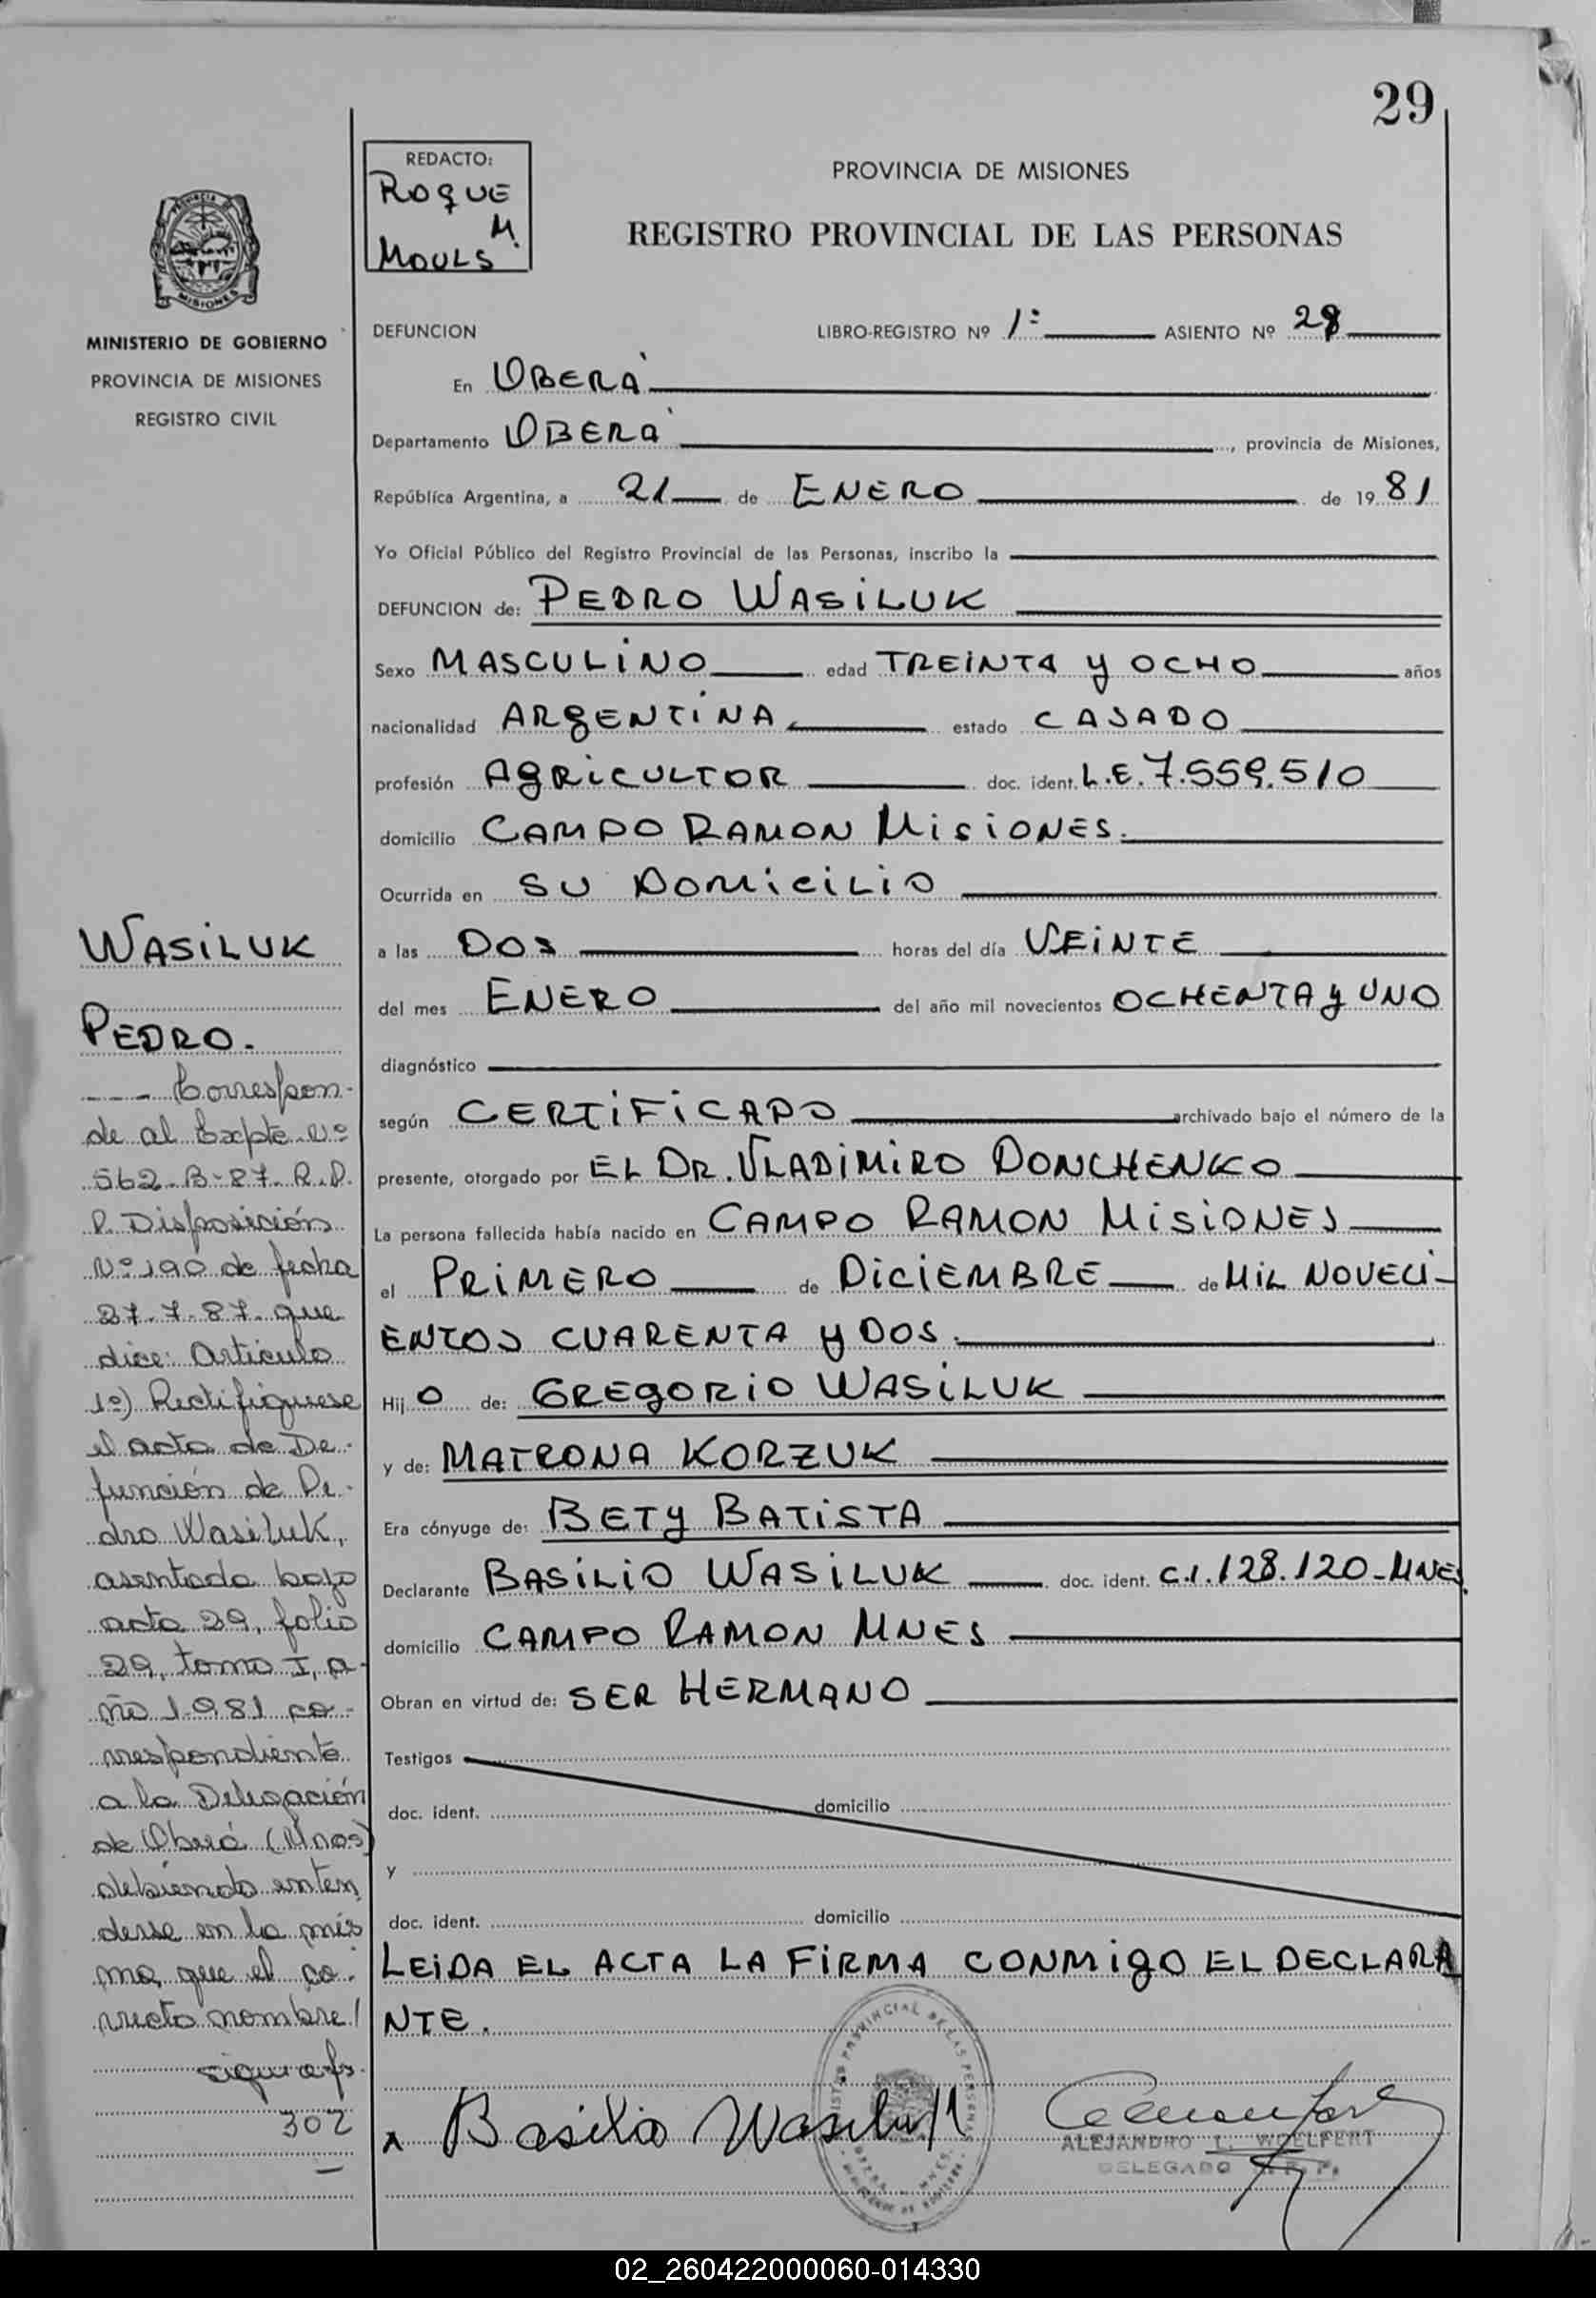 29
REDACTO:
ROQUE
M.
MOULS
PROVINCIA DE MISIONES
REGISTRO PROVINCIAL DE LAS PERSONAS
MINISTERIO DE GOBIERNO
PROVINCIA DE MISIONES
REGISTRO CIVIL
DEFUNCION LIBRO-REGISTRO Nº 1º ASIENTO Nº 29
En OBERA
Departamento OBERA, provincia de Misiones,
República Argentina, a 21 de ENERO de 1981
Yo Oficial Público del Registro Provincial de las Personas, inscribo la
DEFUNCION de: PEDRO WASILUK
Sexo MASCULINO edad TREINTA y OCHO años
nacionalidad ARGENTINA estado CASADO
profesión AGRICULTOR doc. ident. L.E. 7.559.510
domicilio CAMPO RAMON MISIONES.
Ocurrida en SU DOMICILIO
a las DOS horas del día VEINTE
del mes ENERO del año mil novecientos OCHENTA y UNO
diagnóstico
según CERTIFICADO archivado bajo el número de la
presente, otorgado por EL DR. VLADIMIRO DONCHENKO
La persona fallecida había nacido en CAMPO RAMON MISIONES
el PRIMERO de DICIEMBRE de MIL NOVECI-
ENTOS CUARENTA y DOS.
Hij O de: GREGORIO WASILUK
y de: MATRONA KORZUK
Era cónyuge de: BETY BATISTA
Declarante BASILIO WASILUK doc. ident. C.I. 128.120-MNES.
domicilio CAMPO RAMON MNES
Obran en virtud de: SER HERMANO
Testigos
doc. ident. domicilio
y
doc. ident. domicilio
LEIDA EL ACTA LA FIRMA CONMIGO EL DECLARA
NTE.
Basilio Wasiluk
ALEJANDRO L. WOELFERT
DELEGADO R. P. P.
WASILUK
PEDRO.
---- Correspon-
de al Expte. Nº
562-B-87-R.P.
P. Disposición
Nº 190 de fecha
27-7-87 que
dice: Artículo
1º) Rectifíquese
el acta de De-
función de Pe-
dro Wasiluk,
asentada bajo
acta 29, folio
29, tomo I, a-
ño 1981 co-
rrespondiente
a la Delegación
de Oberá (Mnes)
debiendo enten
derse en la mis
ma, que el co-
rrecto nombre/
sigue a fs.
302
02_260422000060-014330